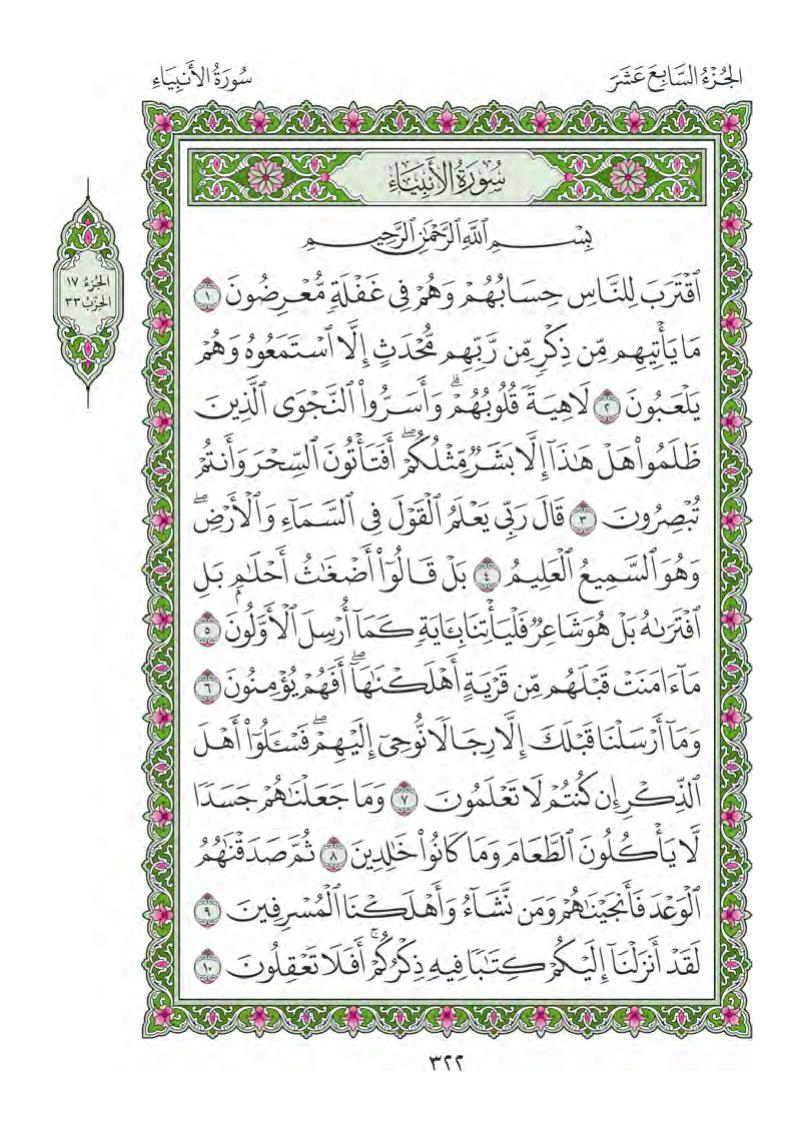 الجُزْءُ السَّابِعَ عَشَرَ
سُورَةُ الأَنبِيَاءِ
سُورَةُ الأَنبِيَاءِ
الجُزْءُ ١٧
الحِزْبُ ٣٣
بِسْمِ ٱللَّهِ ٱلرَّحْمَٰنِ ٱلرَّحِيمِ
ٱقْتَرَبَ لِلنَّاسِ حِسَابُهُمْ وَهُمْ فِي غَفْلَةٖ مُّعْرِضُونَ ١
مَا يَأْتِيهِم مِّن ذِكْرٖ مِّن رَّبِّهِم مُّحْدَثٍ إِلَّا ٱسْتَمَعُوهُ وَهُمْ
يَلْعَبُونَ ٢ لَاهِيَةٗ قُلُوبُهُمْۗ وَأَسَرُّواْ ٱلنَّجْوَى ٱلَّذِينَ
ظَلَمُواْ هَلْ هَٰذَآ إِلَّا بَشَرٞ مِّثْلُكُمْۖ أَفَتَأْتُونَ ٱلسِّحْرَ وَأَنتُمْ
تُبْصِرُونَ ٣ قَالَ رَبِّي يَعْلَمُ ٱلْقَوْلَ فِي ٱلسَّمَآءِ وَٱلْأَرْضِۖ
وَهُوَ ٱلسَّمِيعُ ٱلْعَلِيمُ ٤ بَلْ قَالُوٓاْ أَضْغَٰثُ أَحْلَٰمِۭ بَلِ
ٱفْتَرَىٰهُ بَلْ هُوَ شَاعِرٞ فَلْيَأْتِنَا بِـَٔايَةٖ كَمَآ أُرْسِلَ ٱلْأَوَّلُونَ ٥
مَآ ءَامَنَتْ قَبْلَهُم مِّن قَرْيَةٍ أَهْلَكْنَٰهَآۖ أَفَهُمْ يُؤْمِنُونَ ٦
وَمَآ أَرْسَلْنَا قَبْلَكَ إِلَّا رِجَالٗا نُّوحِيٓ إِلَيْهِمْۖ فَسْـَٔلُوٓاْ أَهْلَ
ٱلذِّكْرِ إِن كُنتُمْ لَا تَعْلَمُونَ ٧ وَمَا جَعَلْنَٰهُمْ جَسَدٗا
لَّا يَأْكُلُونَ ٱلطَّعَامَ وَمَا كَانُواْ خَٰلِدِينَ ٨ ثُمَّ صَدَقْنَٰهُمُ
ٱلْوَعْدَ فَأَنجَيْنَٰهُمْ وَمَن نَّشَآءُ وَأَهْلَكْنَا ٱلْمُسْرِفِينَ ٩
لَقَدْ أَنزَلْنَآ إِلَيْكُمْ كِتَٰبٗا فِيهِ ذِكْرُكُمْۚ أَفَلَا تَعْقِلُونَ ١٠
٣٢٢